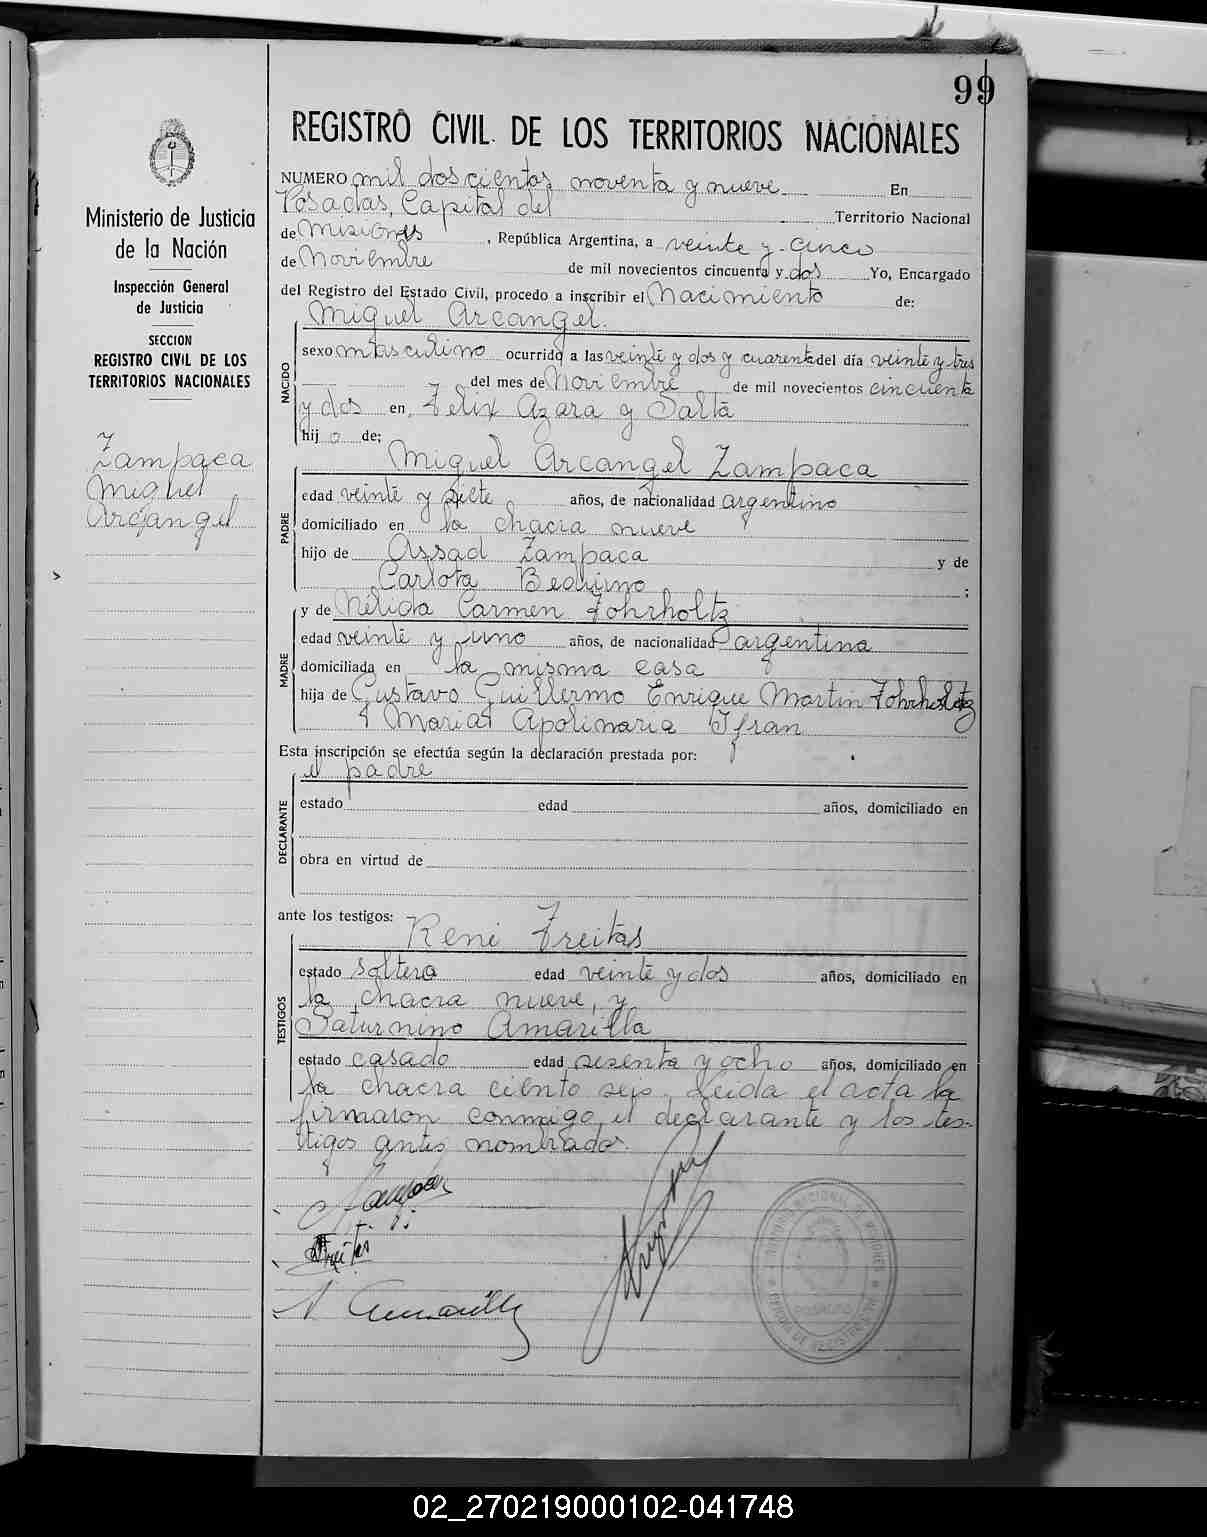 99
REGISTRO CIVIL DE LOS TERRITORIOS NACIONALES
Ministerio de Justicia
de la Nación
Inspección General
de Justicia
SECCION
REGISTRO CIVIL DE LOS
TERRITORIOS NACIONALES
Zampaca
Miguel
Arcangel
NUMERO mil doscientos noventa y nueve En
Posadas, Capital del Territorio Nacional
de Misiones, República Argentina, a veinte y cinco
de Noviembre de mil novecientos cincuenta y dos Yo, Encargado
del Registro del Estado Civil, procedo a inscribir el Nacimiento de:
Miguel Arcangel.
NACIDO
sexo masculino ocurrido a las veinte y dos y cuarenta del día veinte y tres
del mes de Noviembre de mil novecientos cincuenta
y dos en, Felix Azara y Salta
hijo de:
Miguel Arcangel Zampaca
PADRE
edad veinte y siete años, de nacionalidad argentino
domiciliado en la chacra nueve
hijo de Assad Zampaca y de
Carlota Bequino ;
y de Nélida Carmen Fohrholtz
MADRE
edad veinte y uno años, de nacionalidad argentina
domiciliada en la misma casa
hija de Gustavo Guillermo Enrique Martin Fohrholtz
y Maria Apolinaria Ifran
Esta inscripción se efectúa según la declaración prestada por:
el padre
DECLARANTE
estado edad años, domiciliado en
obra en virtud de
ante los testigos:
René Freitas
TESTIGOS
estado soltero edad veinte y dos años, domiciliado en
la chacra nueve, y
Saturnino Amarilla
estado casado edad sesenta y ocho años, domiciliado en
la chacra ciento seis. Leida el acta la
firmaron conmigo el declarante y los tes-
tigos antes nombrados.
Freitas
Amarilla
02_270219000102-041748